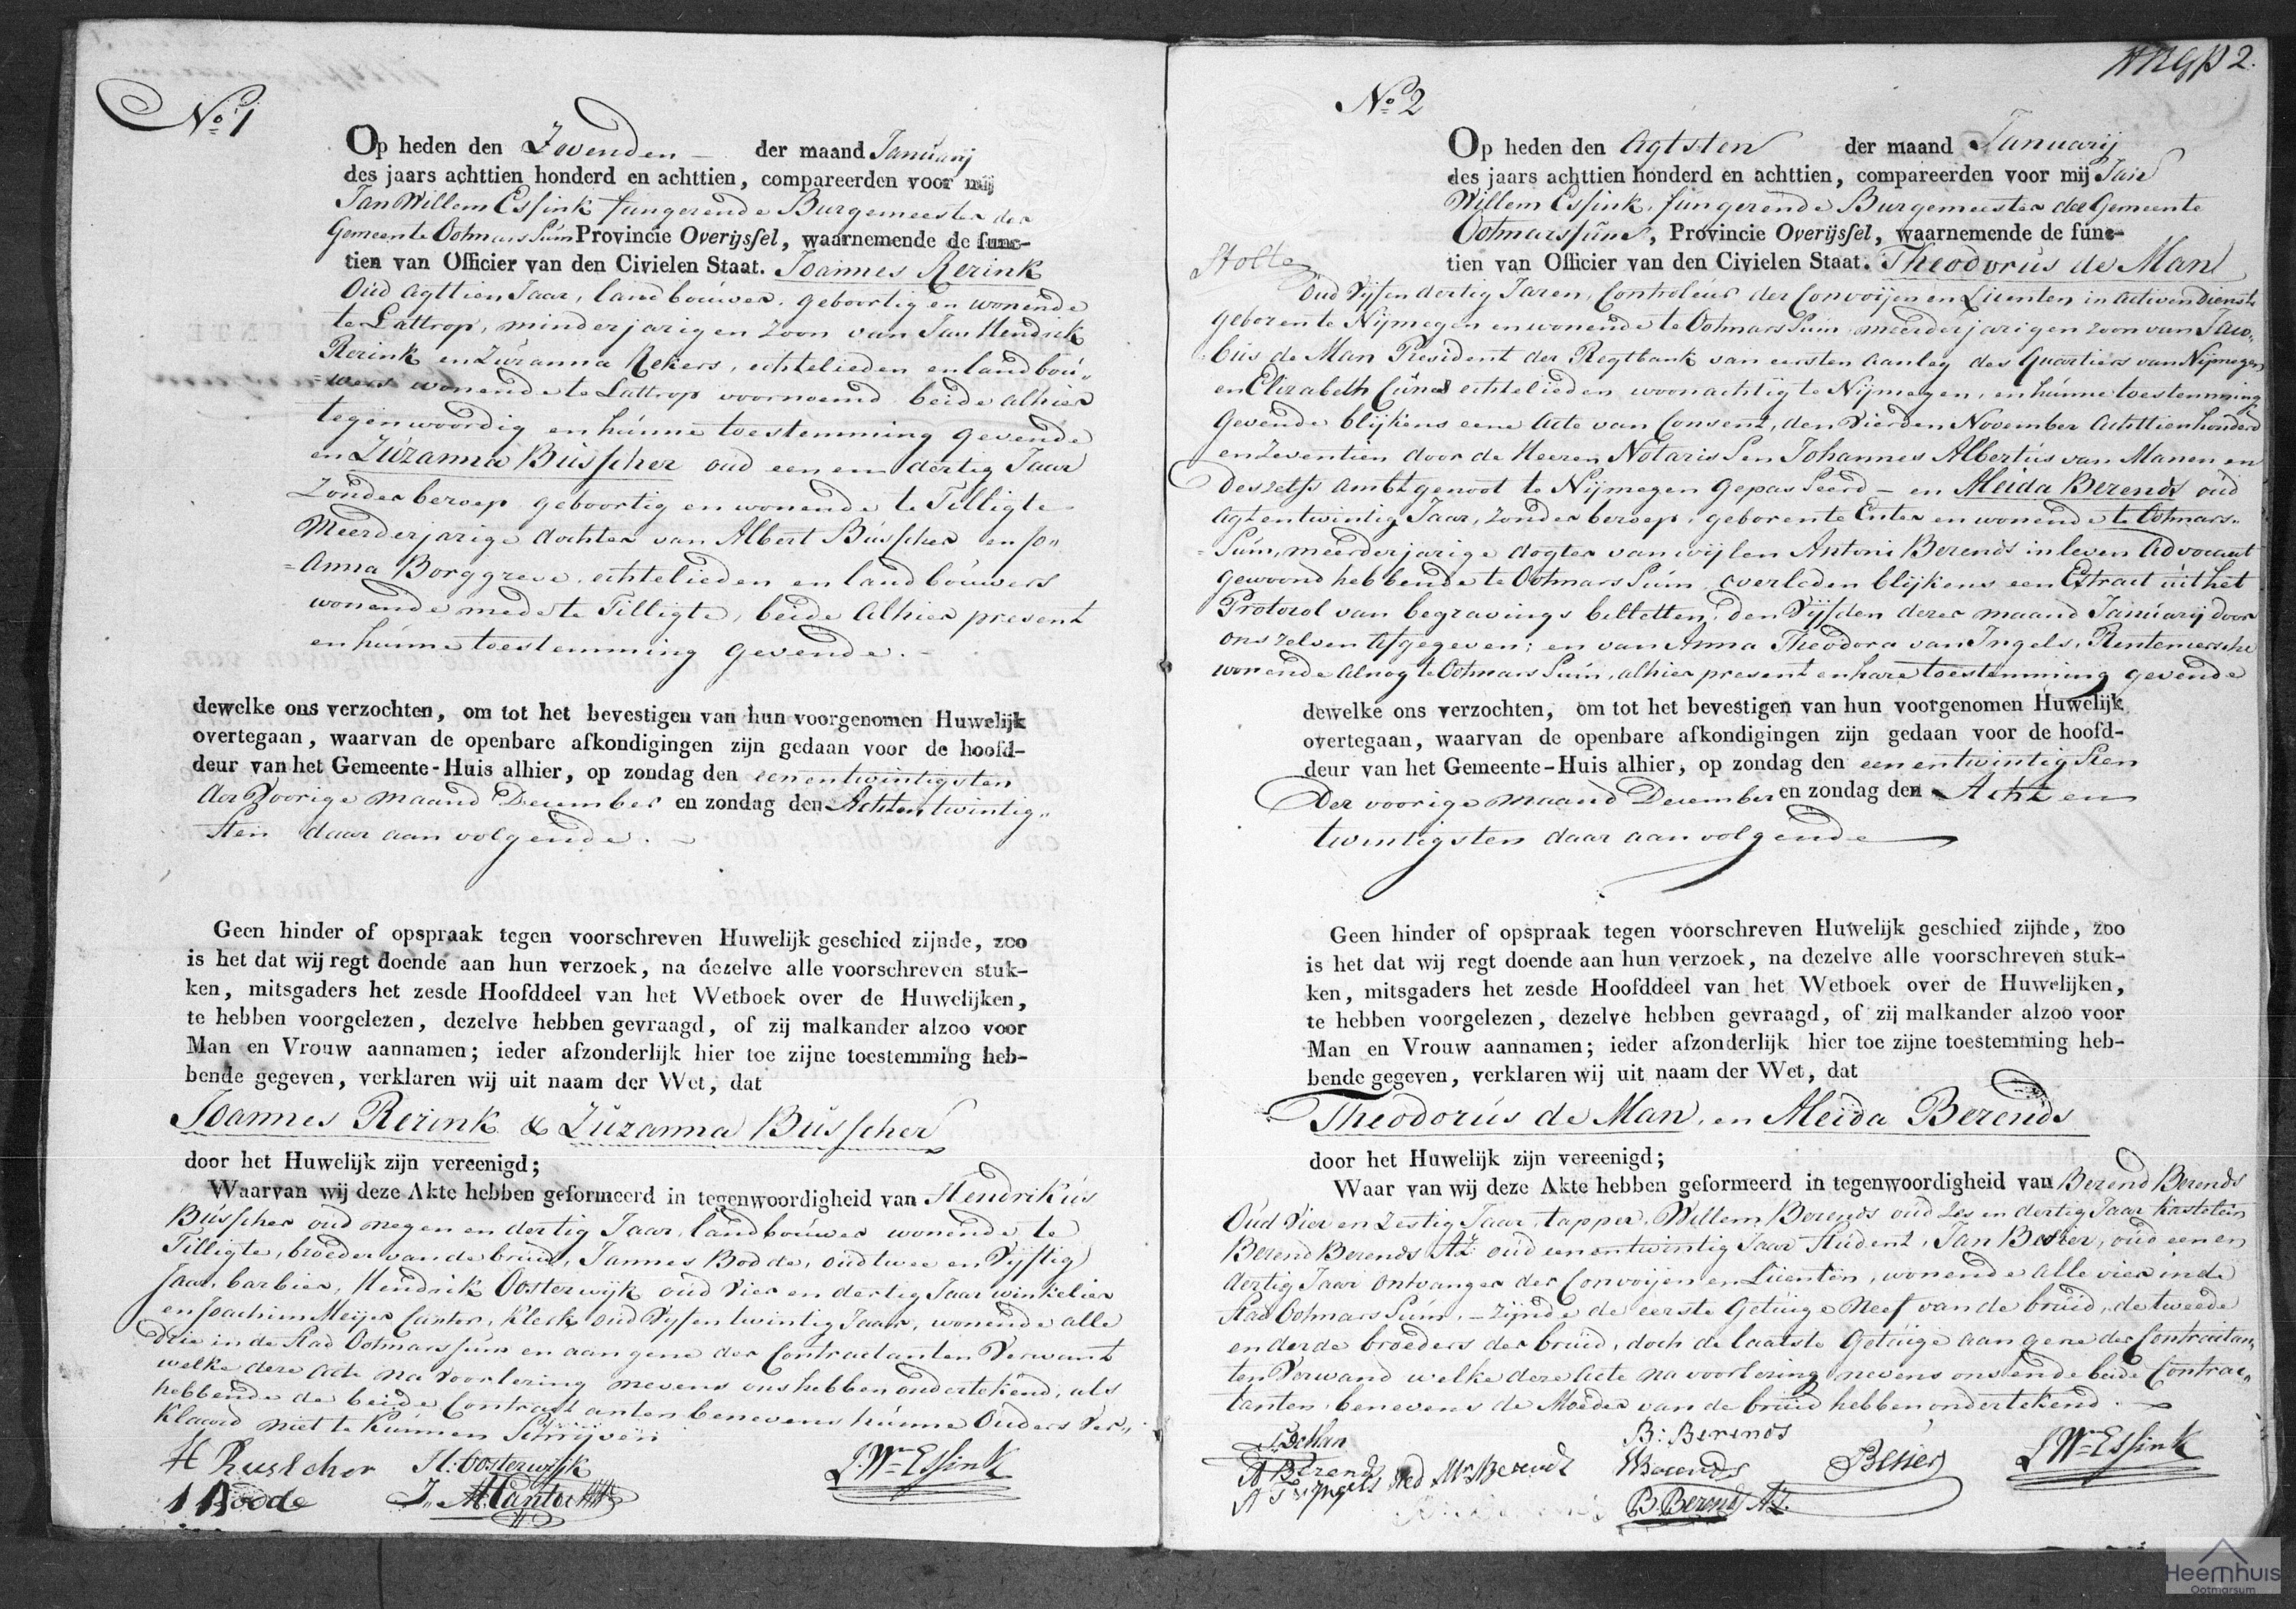 No 1
Op heden den Zevenden – der maand Januarij
des jaars achttien honderd en achttien, compareerden voor mij
Jan Willem Essink fungerende Burgemeester der
Gemeente Ootmarssúm Provincie Overijssel, waarnemende de func-
tien van Officier van den Civielen Staat. Joannes Rerink
Oud agttien Jaar, landbouwer, geboortig en wonende
te Lattrop, minderjarigen zoon van Jan Hendrik
Rerink en Zúzanna Rekers, echtelieden en landboú„
=wers wonende te Lattrop voornoemd beide alhier
tegenwoordig en húnne toestemming gevende
en Zúzanna Bússcher oud een en dertig Jaar
zonder beroep geboortig en wonende te Tilligte
Meerderjarige dochter van Albert Bússcher en Jo„
=anna Borggreve, echtelieden en landboúwers
wonende mede te Tilligte, beide alhier present
en húnne toestemming gevende. –
dewelke ons verzochten, om tot het bevestigen van hun voorgenomen Huwelijk
overtegaan, waarvan de openbare afkondigingen zijn gedaan voor de hoofd-
deur van het Gemeente-Huis alhier, op zondag den een entwintigsten
der Voorige maand December en zondag den Achtentwintig„
sten daar aan volgende. –
Geen hinder of opspraak tegen voorschreven Huwelijk geschied zijnde, zoo
is het dat wij regt doende aan hun verzoek, na dezelve alle voorschreven stuk-
ken, mitsgaders het zesde Hoofddeel van het Wetboek over de Huwelijken,
te hebben voorgelezen, dezelve hebben gevraagd, of zij malkander alzoo voor
Man en Vrouw aannamen; ieder afzonderlijk hier toe zijne toestemming heb-
bende gegeven, verklaren wij uit naam der Wet, dat
Joannes Rerink & Zúzanna Bússcher
door het Huwelijk zijn vereenigd;
Waarvan wij deze Akte hebben geformeerd in tegenwoordigheid van Hendrikús
Bússcher oud negen en dertig Jaar, landboúwer wonende te
Tilligte, broeder van de bruid, Jannes Bodde, oud twee en Vijftig
Jaar, barbier, Hendrik Oosterwijk oud Vier en dertig Jaar winkelier
en Joachim Meijer Cantor, Klerk, oud Vijfentwintig Jaar, wonende alle
drie in de Stad Ootmarssúm en aan gene der Contractanten Verwant
welke deze acte na voorlezing nevens ons hebben ondertekend, als
hebbende de beide Contractanten benevens húnne Ouders Ver„
klaard niet te Kúnnen Schrijven
H Busscher H: Oosterwijk J. Wm Essink
J Bodde J. M. Cantor
No 2
2.
Op heden den Agtsten der maand Januarij
des jaars achttien honderd en achttien, compareerden voor mij Jan
Willem Essink, fungerende Burgemeester der Gemeente
Ootmarssúm, Provincie Overijssel, waarnemende de func-
tien van Officier van den Civielen Staat. Theodorús de Man
Oud Vijf en dertig Jaren, Controleúr der Convoijen en Licenten in activen dienst
geboren te Nijmegen en wonende te Ootmarssum meerderjarigen zoon van Jaco„
bús de Man President der Regtbank van eersten aanleg des Quartiers van Nijmegen
en Elizabeth Cúnes echtelieden woonachtig te Nijmegen, en húnne toestemming
gevende blijkens eene Acte van Consent, den Vierden November Achttienhonderd
en Zeventien door de Heeren Notarissen Johannes Albertús van Manen en
deszelfs ambtgenoot te Nijmegen gepasseerd – en Aleida Berends oud
agtentwintig Jaar, zonder beroep, geboren te Enter en wonende te Ootmars„
=súm, meerderjarige dogter van wijlen Antoni Berends in leven Advocaat
gewoond hebbende te Ootmarssúm overleden blijkens een Extract úit het
Protocol van begravings billetten, den Vijfden dezer maand Januarij door
ons zelven afgegeven; en van Anna Theodora van Ingels, Rentenersche
wonende alnog te Ootmarssúm, alhier present en hare toestemming gevende
dewelke ons verzochten, om tot het bevestigen van hun voorgenomen Huwelijk
overtegaan, waarvan de openbare afkondigingen zijn gedaan voor de hoofd-
deur van het Gemeente-Huis alhier, op zondag den een entwintigsten
Der voorige maand December en zondag den Acht en
twintigsten daar aan volgende
Geen hinder of opspraak tegen voorschreven Huwelijk geschied zijnde, zoo
is het dat wij regt doende aan hun verzoek, na dezelve alle voorschreven stuk-
ken, mitsgaders het zesde Hoofddeel van het Wetboek over de Huwelijken,
te hebben voorgelezen, dezelve hebben gevraagd, of zij malkander alzoo voor
Man en Vrouw aannamen; ieder afzonderlijk hier toe zijne toestemming heb-
bende gegeven, verklaren wij uit naam der Wet, dat
Theodorús de Man, en Aleida Berends
door het Huwelijk zijn vereenigd;
Waar van wij deze Akte hebben geformeerd in tegenwoordigheid van Berend Berends
Oud Vier en Zestig Jaar, tapper, Willem Berends oud Zes en dertig Jaar Kastelein
Berend Berends Az. oud een entwintig Jaar Stúdent, Jan Besier, oud een en
dertig Jaar Ontvanger der Convoijen en Licenten, wonende alle vier in de
Stad Ootmarssúm, – zijnde de eerste Getúige Neef van de brúid, de tweede
en derde broeders der brúid, doch de laatste Getúige aan gene der Contractan„
ten Verwand welke deze Acte na voorlezing nevens ons en de beide Contrac„
tanten, benevens de Moeder van de brúid hebben ondertekend. –
T. De Man B: Berends
A Berends WBerends Besier J. Wm Essink
B. Berends Az.
Heemhuis
Ootmarsum